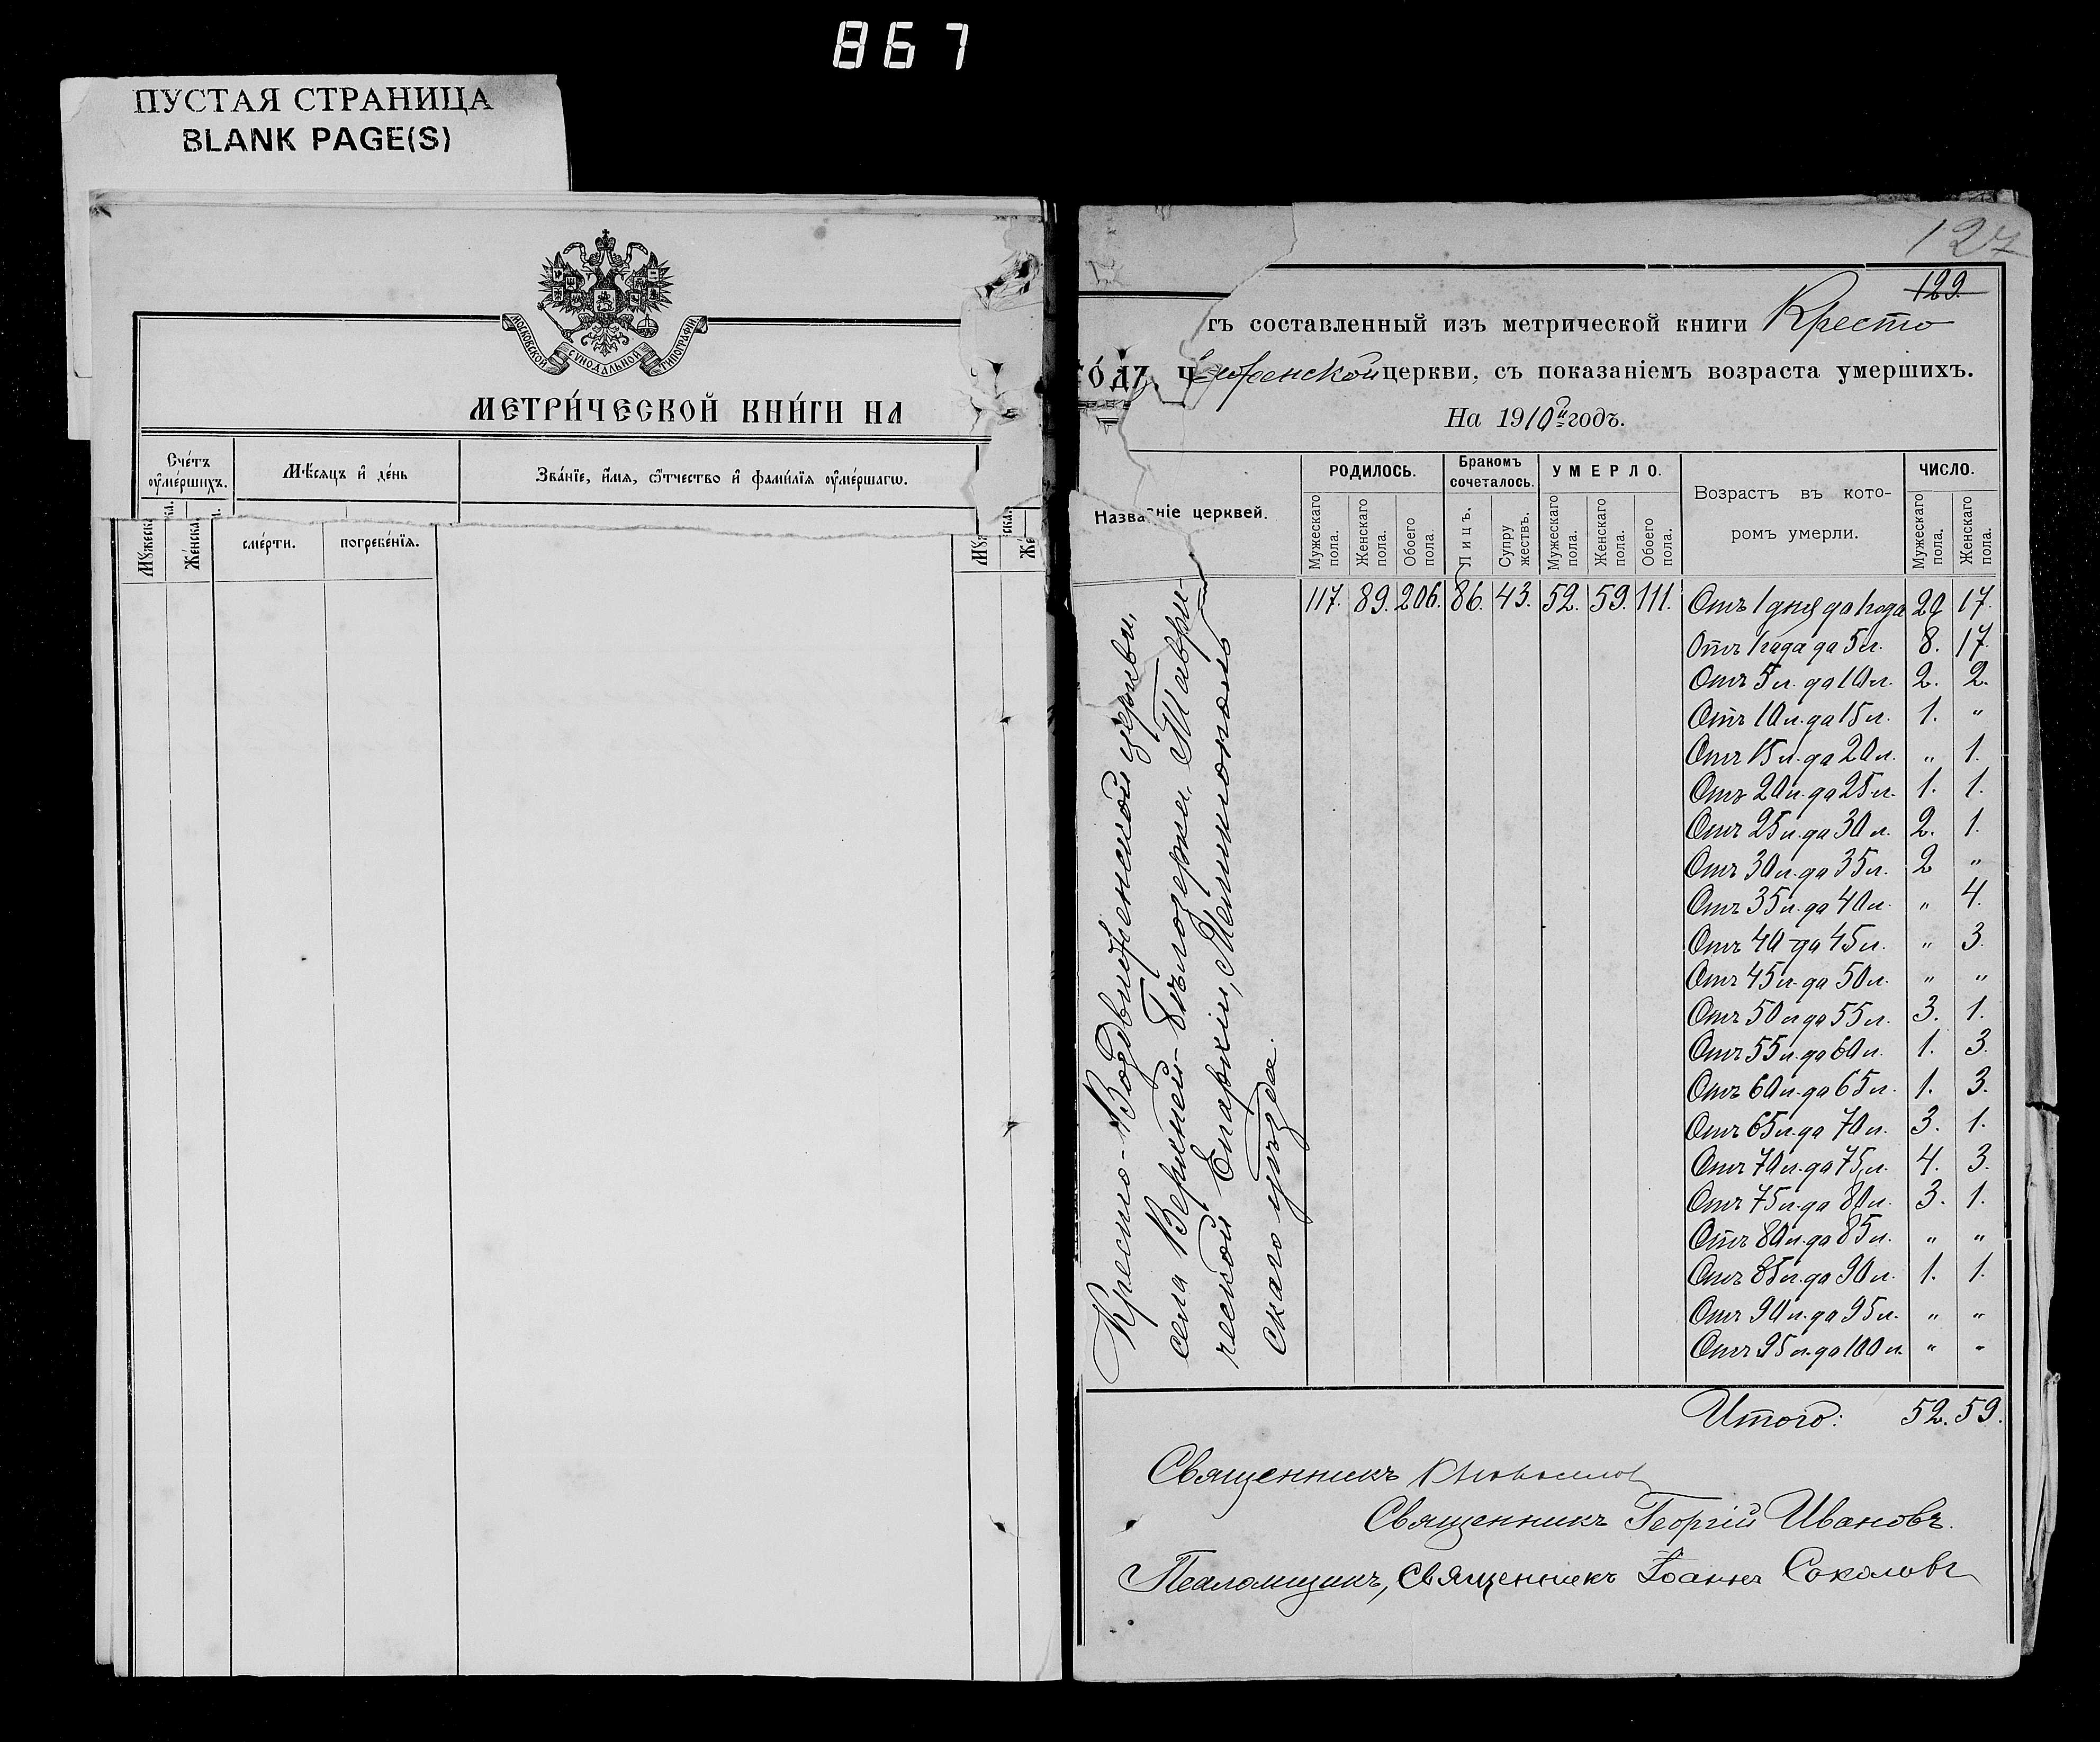 867
ПУСТАЯ СТРАНИЦА
BLANK PAGE(S)
МОСКОВСКОЙ СѴНОДАЛЬНОЙ ТИПОГРАФІИ
МЕТРИ́ЧЕСКОЙ КНИ́ГИ НА
Сче́тъ оуме́ршихъ.
Мѣ́сяцъ и де́нь
Зва́ніе, и́мя, ѻ́тчество и фами́лія оуме́ршагѡ.
Же́нска
сме́рти.
погребе́нія.
127
129.
гъ составленный изъ метрической книги Кресто
женской церкви, съ показаніемъ возраста умершихъ.
На 1910й годъ.
Названіе церквей.
РОДИЛОСЬ.
Бракомъ сочеталось.
УМЕРЛО.
Возрастъ въ кото-
ромъ умерли.
ЧИСЛО.
Мужескаго пола.
Женскаго пола.
Обоего пола.
Лицъ.
Супружествъ.
Мужескаго пола.
Женскаго пола.
Обоего пола.
Мужескаго пола.
Женскаго пола.
Кресто-Воздвиженской церкви,
села Верхней-Бѣлозерки, Таври-
ческой Епархіи, Мелитополь
скаго уѣзда.
117. 89. 206. 86. 43. 52. 59. 111. Отъ 1 дня до 1 года 20 17.
Отъ 1 года до 5 л. 8. 17.
Отъ 5 л. до 10 л. 2. 2.
Отъ 10 л. до 15 л. 1. "
Отъ 15 л. до 20 л. " 1.
Отъ 20 л. до 25 л. 1. 1.
Отъ 25 л. до 30 л. 2. 1.
Отъ 30 л. до 35 л. 2 "
Отъ 35 л. до 40 л. " 4.
Отъ 40 до 45 л. " 3.
Отъ 45 л. до 50 л. " "
Отъ 50 л. до 55 л. 3. 1.
Отъ 55 л. до 60 л. 1. 3.
Отъ 60 л. до 65 л. 1. 3.
Отъ 65 л. до 70 л. 3. 1.
Отъ 70 л. до 75 л. 4. 3.
Отъ 75 л. до 80 л. 3. 1.
Отъ 80 л. до 85 л. " "
Отъ 85 л. до 90 л. 1. 1.
Отъ 90 л. до 95 л. " "
Отъ 95 л. до 100 л. " "
Итого: 52. 59.
Священникъ
Священникъ Георгій Ивановъ.
Псаломщикъ, Священникъ Іоаннъ Соколовъ